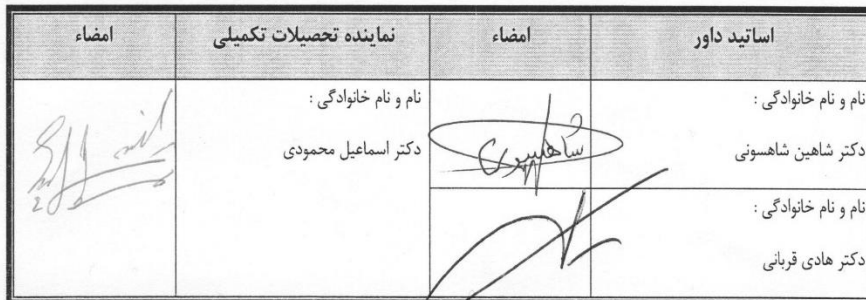 اساتید داور
امضاء
نماینده تحصیلات تکمیلی
امضاء
نام و نام خانوادگی :
دکتر شاهین شاهسونی
نام و نام خانوادگی :
دکتر هادی قربانی
نام و نام خانوادگی :
دکتر اسماعیل محمودی